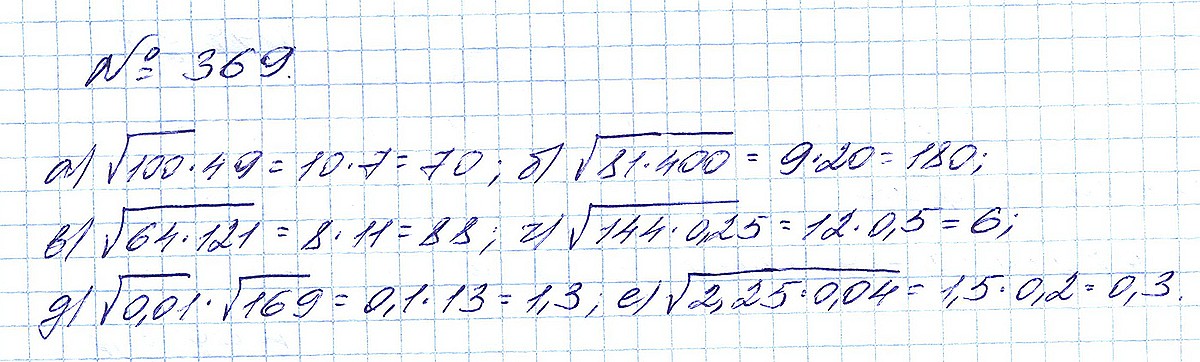 № 369.
а) √100·49 = 10·7 = 70; б) √81·400 = 9·20 = 180;
в) √64·121 = 8·11 = 88; г) √144·0,25 = 12·0,5 = 6;
д) √0,01·√169 = 0,1·13 = 1,3; е) √2,25·0,04 = 1,5·0,2 = 0,3.